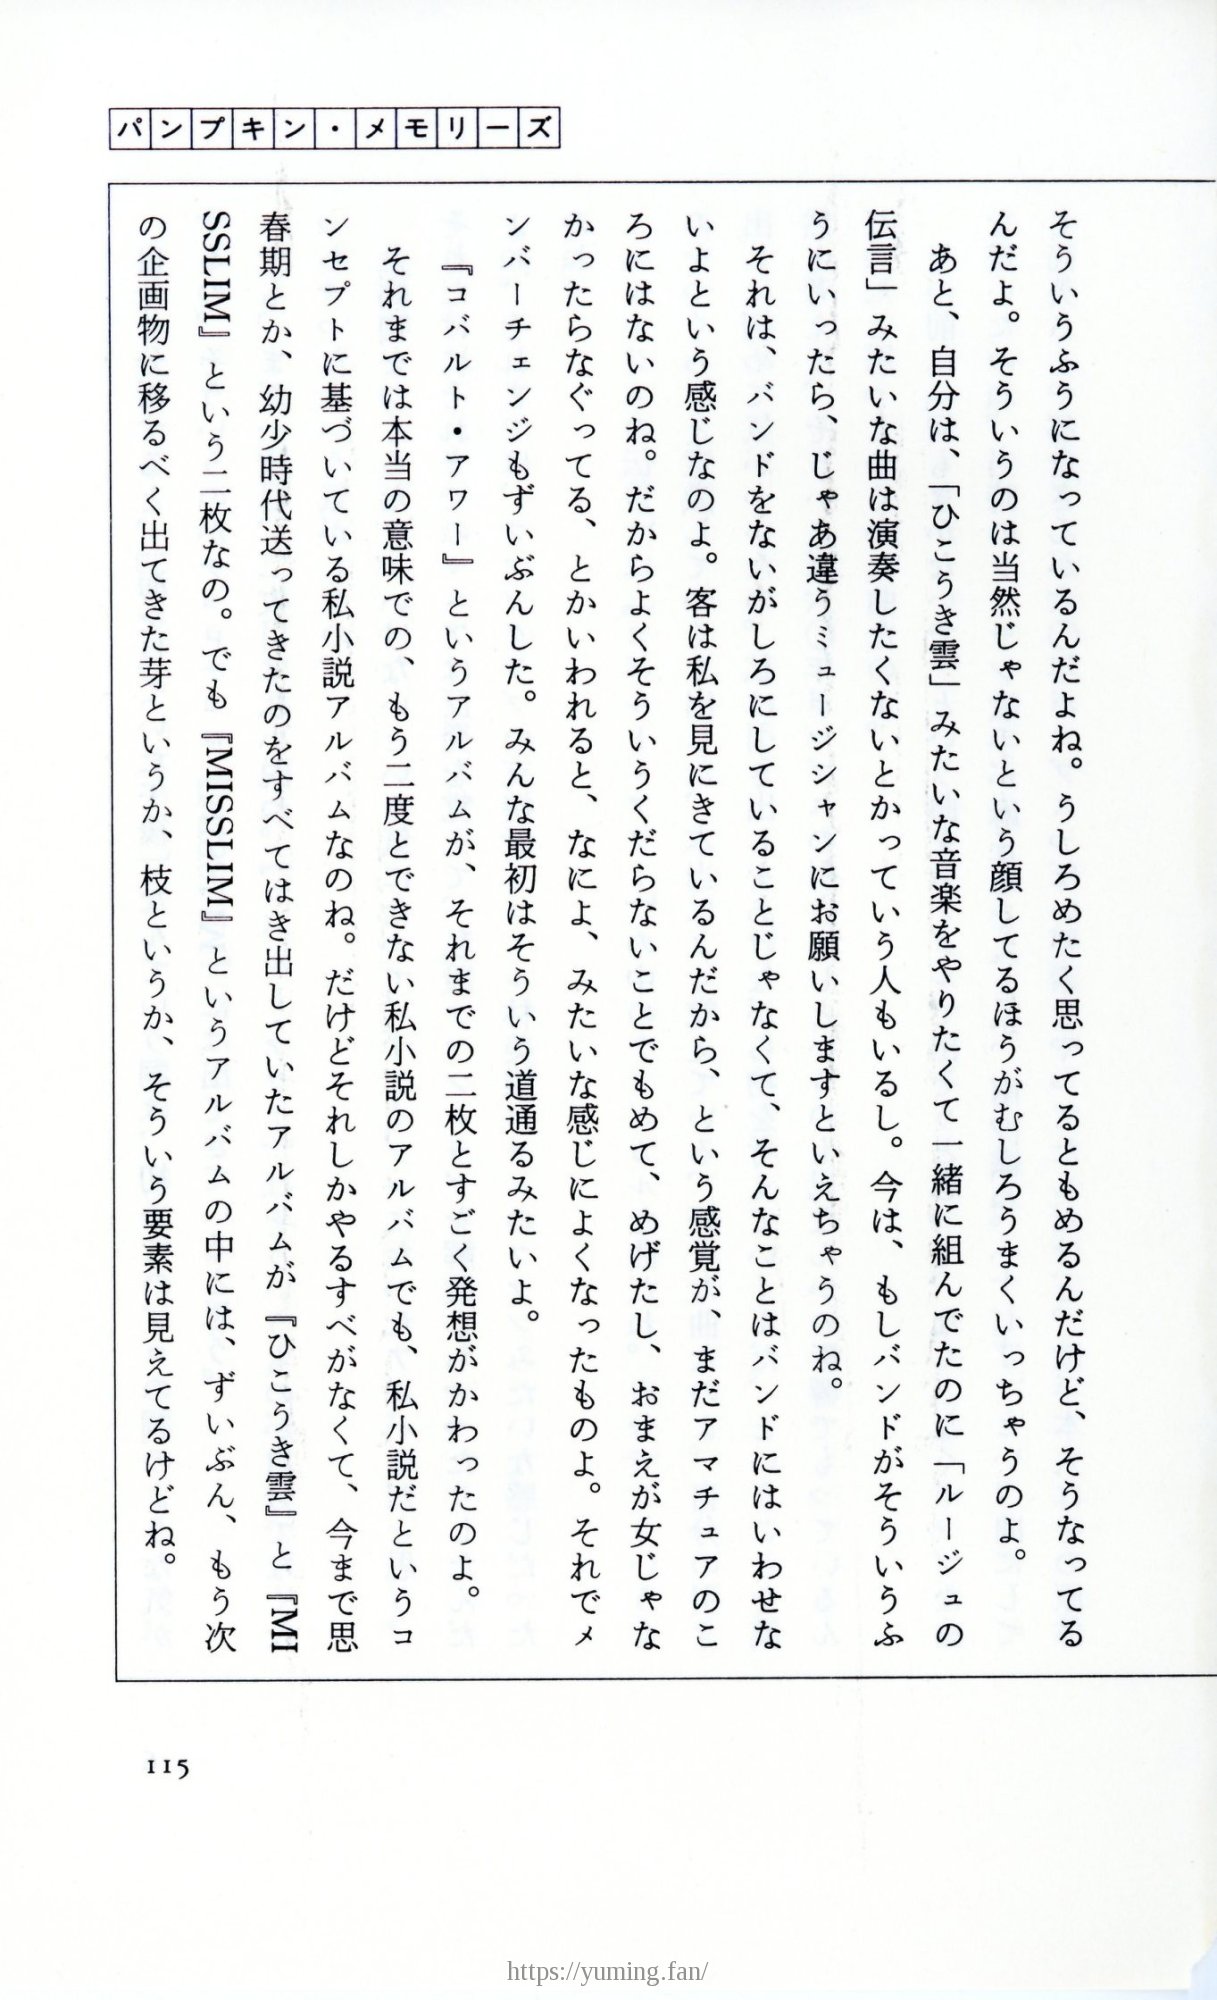 パンプキン・メモリーズ
そういうふうになっているんだよね。うしろめたく思ってるともめるんだけど、そうなってる
んだよ。そういうのは当然じゃないという顔してるほうがむしろうまくいっちゃうのよ。
あと、自分は、「ひこうき雲」みたいな音楽をやりたくて一緒に組んでたのに「ルージュの
伝言」みたいな曲は演奏したくないとかっていう人もいるし。今は、もしバンドがそういうふ
うにいったら、じゃあ違うミュージシャンにお願いしますといえちゃうのね。
それは、バンドをないがしろにしていることじゃなくて、そんなことはバンドにはいわせな
いよという感じなのよ。客は私を見にきているんだから、という感覚が、まだアマチュアのこ
ろにはないのね。だからよくそういうくだらないことでもめて、めげたし、おまえが女じゃな
かったらなぐってる、とかいわれると、なによ、みたいな感じによくなったものよ。それでメ
ンバーチェンジもずいぶんした。みんな最初はそういう道通るみたいよ。
『コバルト・アワー』というアルバムが、それまでの二枚とすごく発想がかわったのよ。
それまでは本当の意味での、もう二度とできない私小説のアルバムでも、私小説だというコ
ンセプトに基づいている私小説アルバムなのね。だけどそれしかやるすべがなくて、今まで思
春期とか、幼少時代送ってきたのをすべてはき出していたアルバムが『ひこうき雲』と『MI
SSLIM』という二枚なの。でも『MISSLIM』というアルバムの中には、ずいぶん、もう次
の企画物に移るべく出てきた芽というか、枝というか、そういう要素は見えてるけどね。
115
https://yuming.fan/